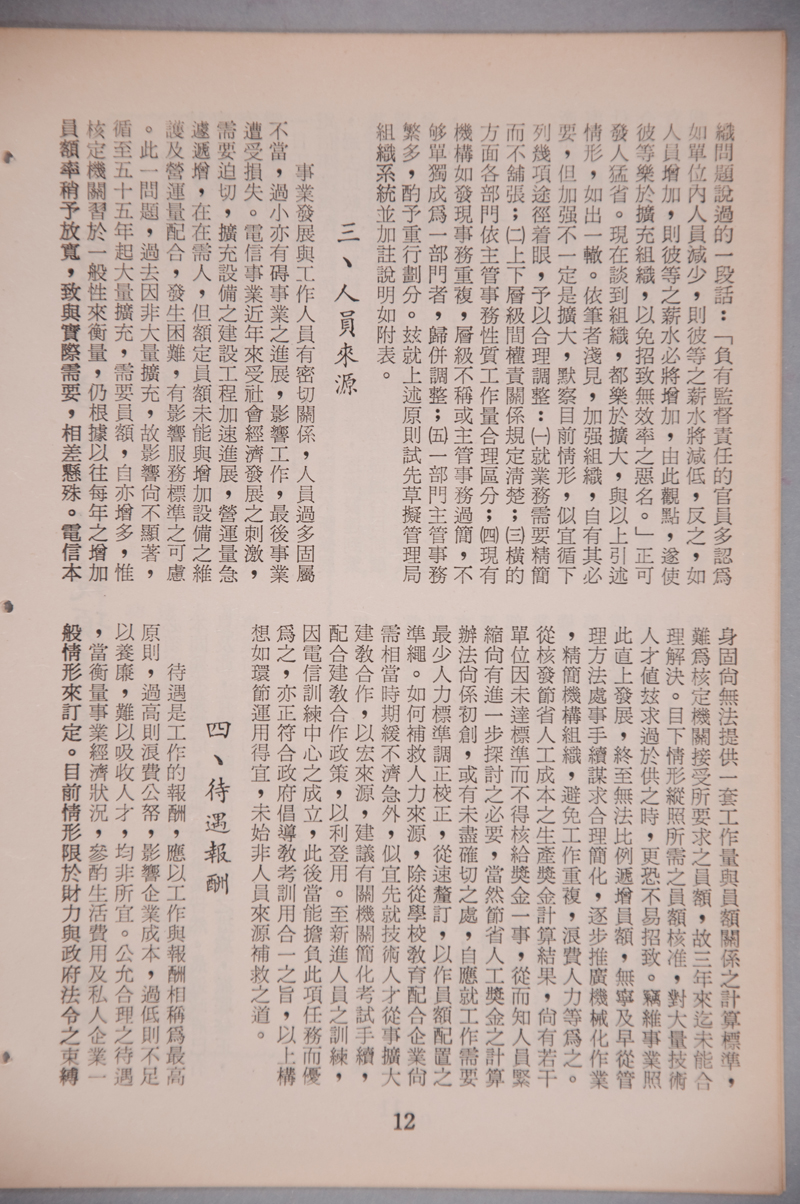 織問題說過的一段話：「負有監督責任的官員多認爲
如單位內人員減少，則彼等之薪水將減低，反之，如
人員增加，則彼等之薪水必將增加，由此觀點，遂使
彼等樂於擴充組織，以免招致無效率之惡名。」正可
發人猛省。現在談到組織，都樂於擴大，與以上引述
情形，如出一轍。依筆者淺見，加强組織，自有其必
要，但加强不一定是擴大，默察目前情形，似宜循下
列幾項途徑着眼，予以合理調整：㈠就業務需要精簡
而不舖張；㈡上下層級間權責關係規定清楚；㈢橫的
方面各部門依主管事務性質工作量合理區分；㈣現有
機構如發現事務重複，層級不稱或主管事務過簡，不
够單獨成爲一部門者，歸併調整；㈤一部門主管事務
繁多，酌予重行劃分。玆就上述原則試先草擬管理局
組織系統並加註說明如附表。
三、人員來源
事業發展與工作人員有密切關係，人員過多固屬
不當，過小亦有碍事業之進展，影響工作，最後事業
遭受損失。電信事業近年來受社會經濟發展之刺激，
需要迫切，擴充設備之建設工程加速進展，營運量急
遽遞增，在在需人，但額定員額未能與增加設備之維
護及營運量配合，發生困難，有影響服務標準之可慮
。此一問題，過去因非大量擴充，故影響尙不顯著，
循至五十五年起大量擴充，需要員額，自亦增多，惟
核定機關習於一般性來衡量，仍根據以往每年之增加
員額率稍予放寬，致與實際需要，相差懸殊。電信本
身固尙無法提供一套工作量與員額關係之計算標準，
難爲核定機關接受所要求之員額，故三年來迄未能合
理解決。目下情形縱照所需之員額核准，對大量技術
人才値玆求過於供之時，更恐不易招致。竊維事業照
此直上發展，終至無法比例遞增員額，無寧及早從管
理方法處事手續謀求合理簡化，逐步推廣機械化作業
，精簡機構組織，避免工作重複，浪費人力等爲之。
從核發節省人工成本之生產獎金計算結果，尙有若干
單位因未達標準而不得核給獎金一事，從而知人員緊
縮尙有進一步探討之必要，當然節省人工獎金之計算
辦法尙係初創，或有未盡確切之處，自應就工作需要
最少人力標準調正校正，從速釐訂，以作員額配置之
準繩。如何補救人力來源，除從學校敎育配合企業尙
需相當時期緩不濟急外，似宜先就技術人才從事擴大
建敎合作，以宏來源，建議有關機關簡化考試手續，
配合建敎合作政策，以利登用。至新進人員之訓練，
因電信訓練中心之成立，此後當能擔負此項任務而優
爲之，亦正符合政府倡導敎考訓用合一之旨，以上構
想如環節運用得宜，未始非人員來源補救之道。
四、待遇報酬
待遇是工作的報酬，應以工作與報酬相稱爲最高
原則，過高則浪費公帑，影響企業成本，過低則不足
以養廉，難以吸收人才，均非所宜。公允合理之待遇
，當衡量事業經濟狀況，參酌生活費用及私人企業一
般情形來訂定。目前情形限於財力與政府法令之束縛
12